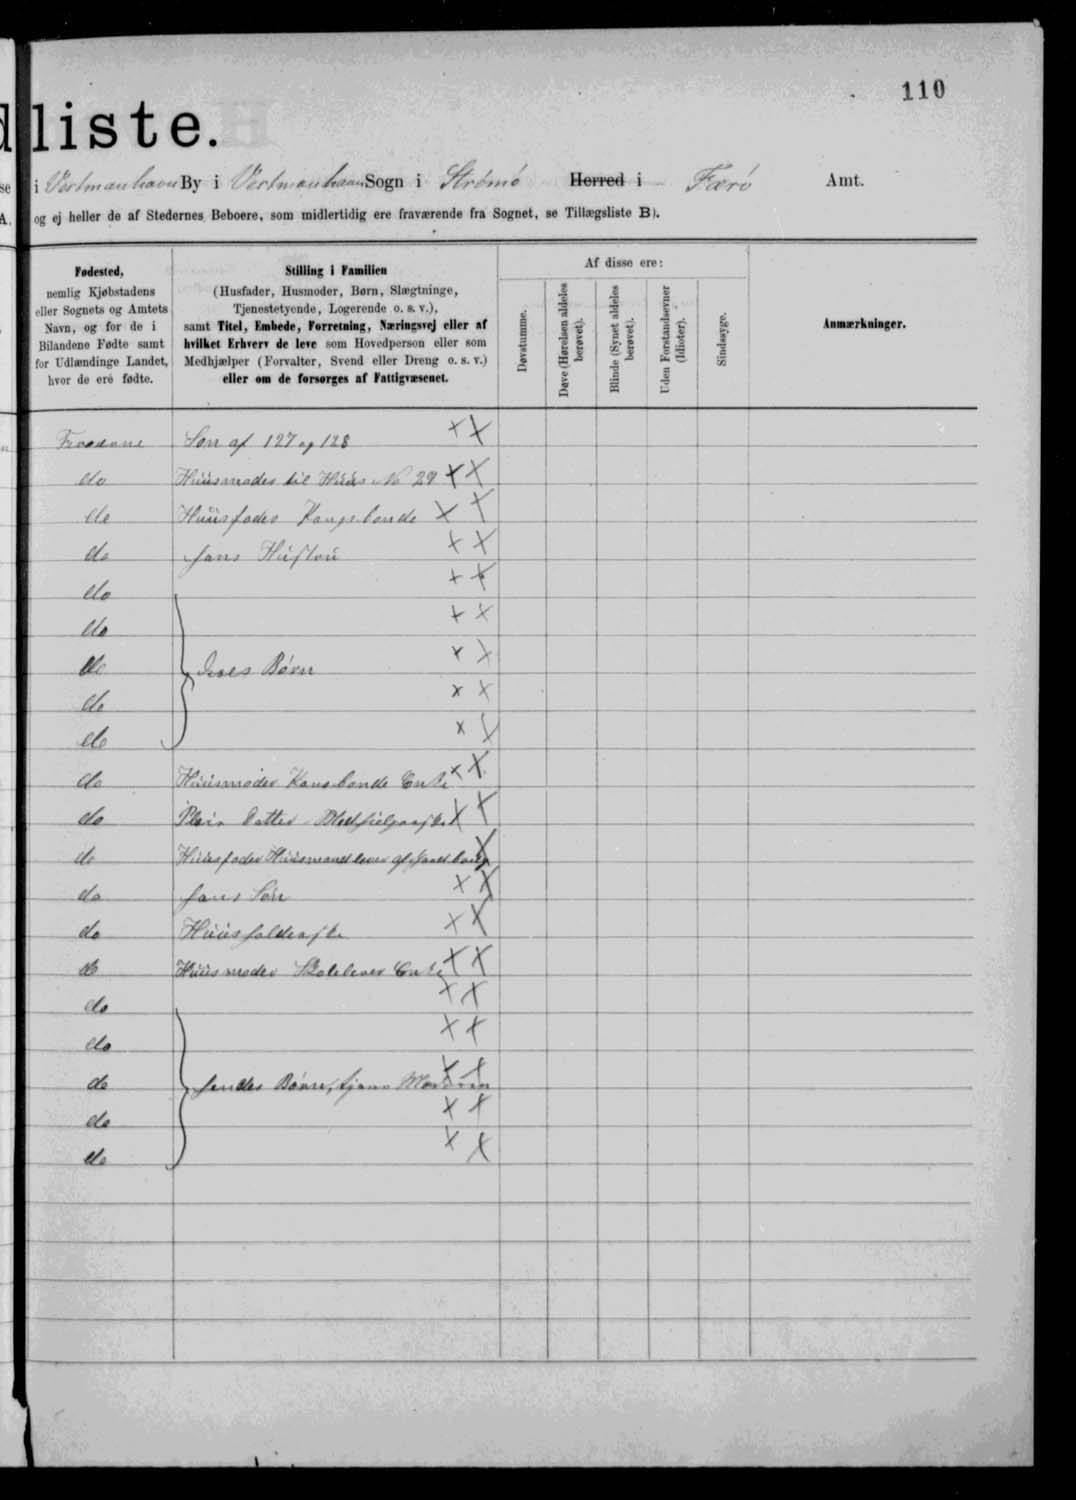 110
liste.
i Vestmanhavn By i Vestmanhavn Sogn i Strømø Herred i Færø Amt.
og ej heller de af Stedernes Beboere, som midlertidig ere fraværende fra Sognet, se Tillægsliste B).
Fødested,
nemlig Kjøbstadens
eller Sognets og Amtets
Navn, og for de i
Bilandene Fødte samt
for Udlændinge Landet,
hvor de ere fødte.
Stilling i Familien
(Husfader, Husmoder, Børn, Slægtninge,
Tjenestetyende, Logerende o. s. v.),
samt Titel, Embede, Forretning, Næringsvej eller af
hvilket Erhverv de leve som Hovedperson eller som
Medhjælper (Forvalter, Svend eller Dreng o. s. v.)
eller om de forsørges af Fattigvæsenet.
Af disse ere:
Døvstumme.
Døve (Hørelsen aldeles
berøvet).
Blinde (Synet aldeles
berøvet).
Uden Forstandsevner
(Idioter).
Sindssyge.
Anmærkninger.
Søn af 127 og 128
do Huusmoder til Huus No 29
do Huusfader Kongsbonde
do hans Hustru
do
do
do deres Børn
do
do
do Huusmoder Kongsbonde Enke
do Datter
do Huusfader Huusmand lever af
do hans Søn
do Huusholderske
do Huusmoder Enke
do
do
do hendes Børn, tjene Moderen
do
do